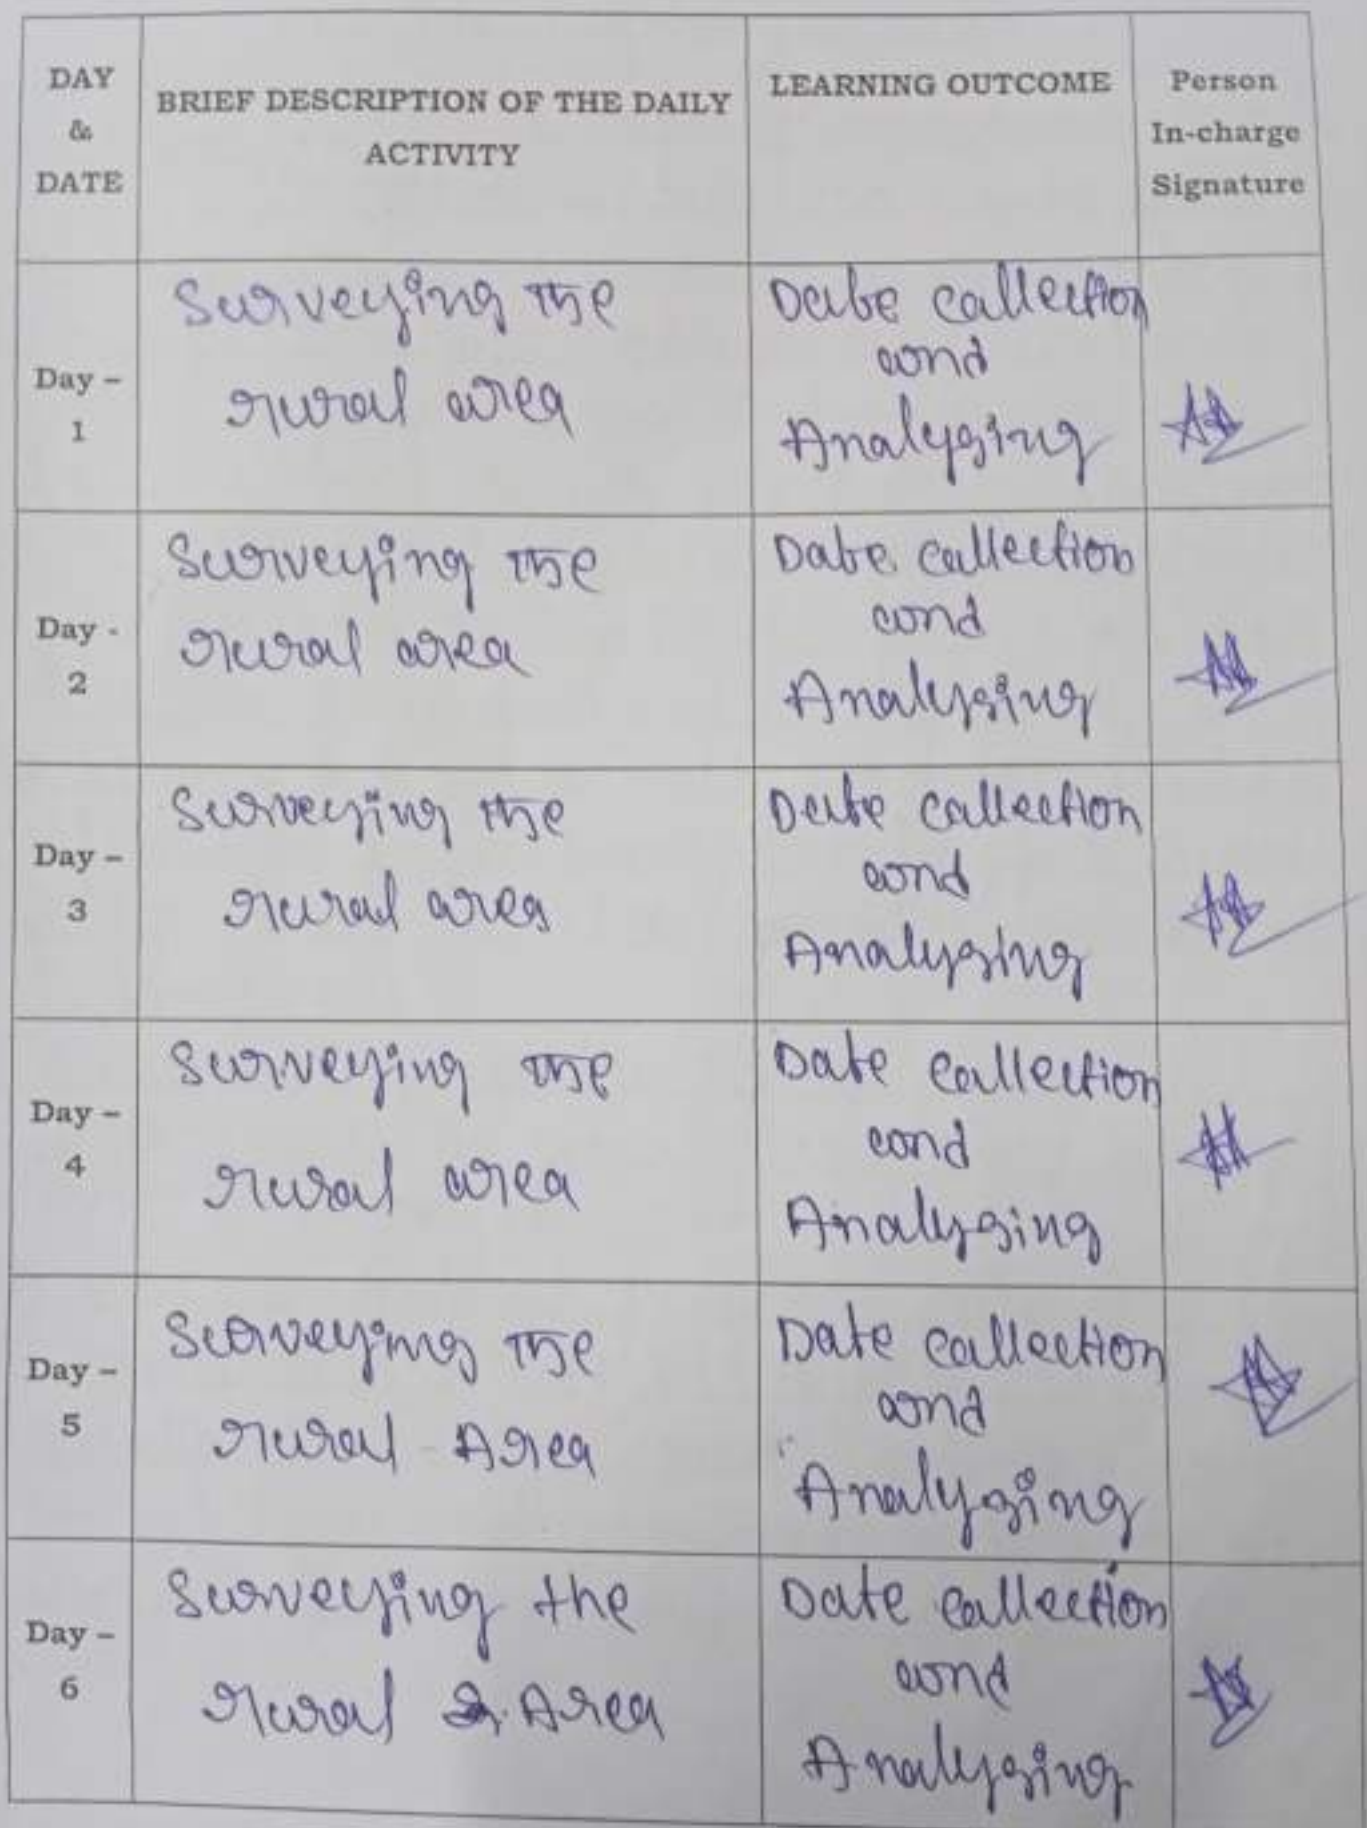 DAY
&
DATE
BRIEF DESCRIPTION OF THE DAILY
ACTIVITY
LEARNING OUTCOME
Person
In-charge
Signature
Day –
1
Surveying the
rural area
Date collection
and
Analysing
Day -
2
Surveying the
rural area
Date collection
and
Analysing
Day –
3
Surveying the
rural area
Date collection
and
Analysing
Day –
4
Surveying the
rural area
Date collection
and
Analysing
Day –
5
Surveying the
rural Area
Date collection
and
Analysing
Day –
6
Surveying the
rural Area
Date collection
and
Analysing